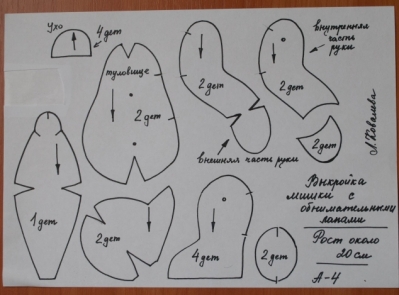 Ухо
4 дет
туловище
2 дет
2 дет
2 дет
внутренняя
часть
руки
внешняя часть руки
2 дет
Л. Ковалева
1 дет
2 дет
4 дет
2 дет
Выкройка
мишки с
обнимательными
лапами
Рост около
20 см
А-4